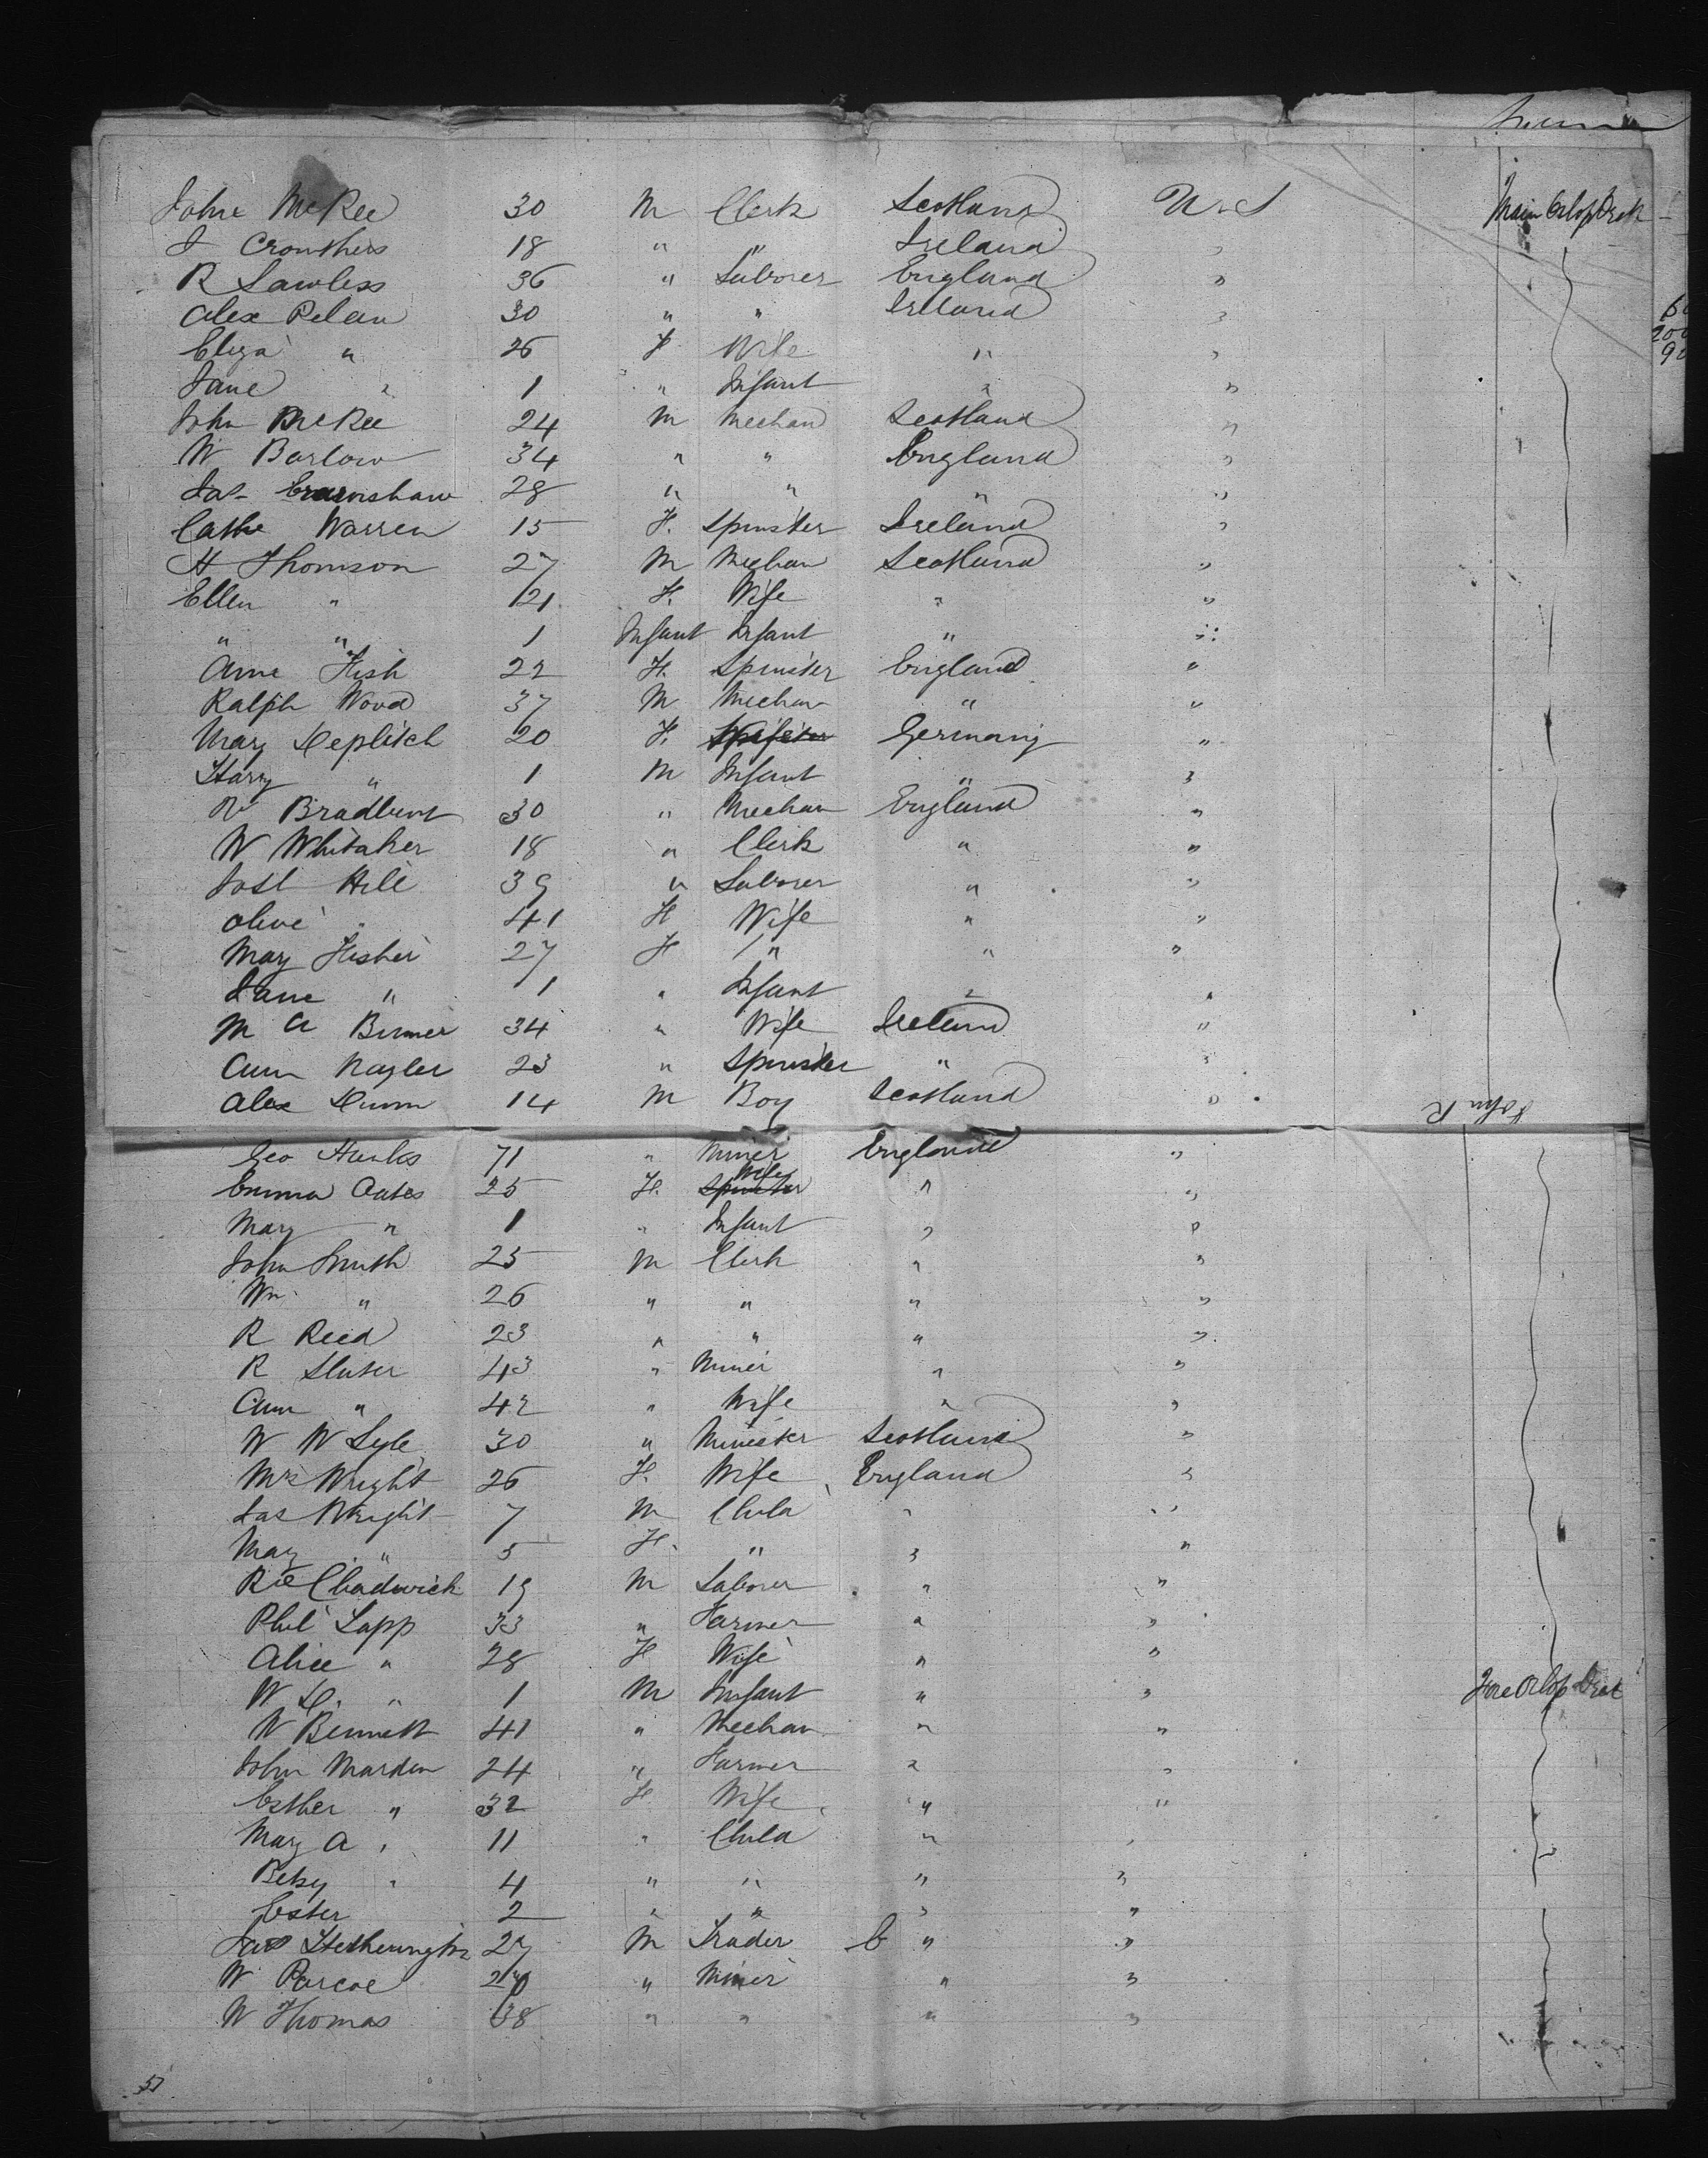 John McKee 30 M Clerk Scotland U.S Main Orlop Deck
J Crowthers 18 " " Ireland "
R Lawless 36 " Laborer England "
Alex Pelan 30 " " Ireland "
Eliza " 26 F Wife " "
Jane " 1 " Infant " "
John McKee 24 M Mechan Scotland "
W Barlow 34 " " England "
Jas Crawshaw 28 " " " "
Cathe Warren 15 F. Spinster Ireland "
H Thomson 27 M Mechan Scotland "
Ellen " 21 F. Wife " "
" " 1 Infant Infant " "
Anne Fish 22 F. Spinster England "
Ralph Wood 37 M Mechan " "
Mary Deplitch 20 F. Germany "
Harry " 1 M Infant " "
W Bradburt 30 " Mechan England "
W Whitaker 18 " Clerk " "
Jos Hill 39 " Laborer " "
Olive " 41 F Wife " "
Mary Fisher 27 F " " "
Jane " 1 " Infant " "
M A 34 " Wife Ireland "
Ann Nayler 23 " Spinster " "
Alex Dunn 14 M Boy Scotland " John R
Geo Hanks 71 " Miner England "
Emma Oates 25 F. Spinster Wife " "
Mary " 1 " Infant " "
John Smith 25 M Clerk " "
Wm " 26 " " " "
R Reed 23 " " " "
R Sluter 43 " Miner " "
Ann " 42 " Wife " "
W W Lyle 30 " Minister Scotland "
Mrs Wright 26 F. Wife England "
Jas Wright 7 M Child " "
Mary " 5 F. " " "
Rd Chadwick 19 M Laborer " "
Phil Lapp 33 " Farmer " "
Alice " 28 F Wife " "
W D. " 1 M Infant " " Fore Orlop Deck
W Bennett 41 " Mechan " "
John Marden 24 " Farmer " "
Esther " 32 F Wife " "
Mary A " 11 " Child " "
Betsy " 4 " " " "
Ester 2 " " " "
Jas Hetherington 27 M Trader " "
W Pascoe 20 " Miner " "
W Thomas 38 " " " "
57